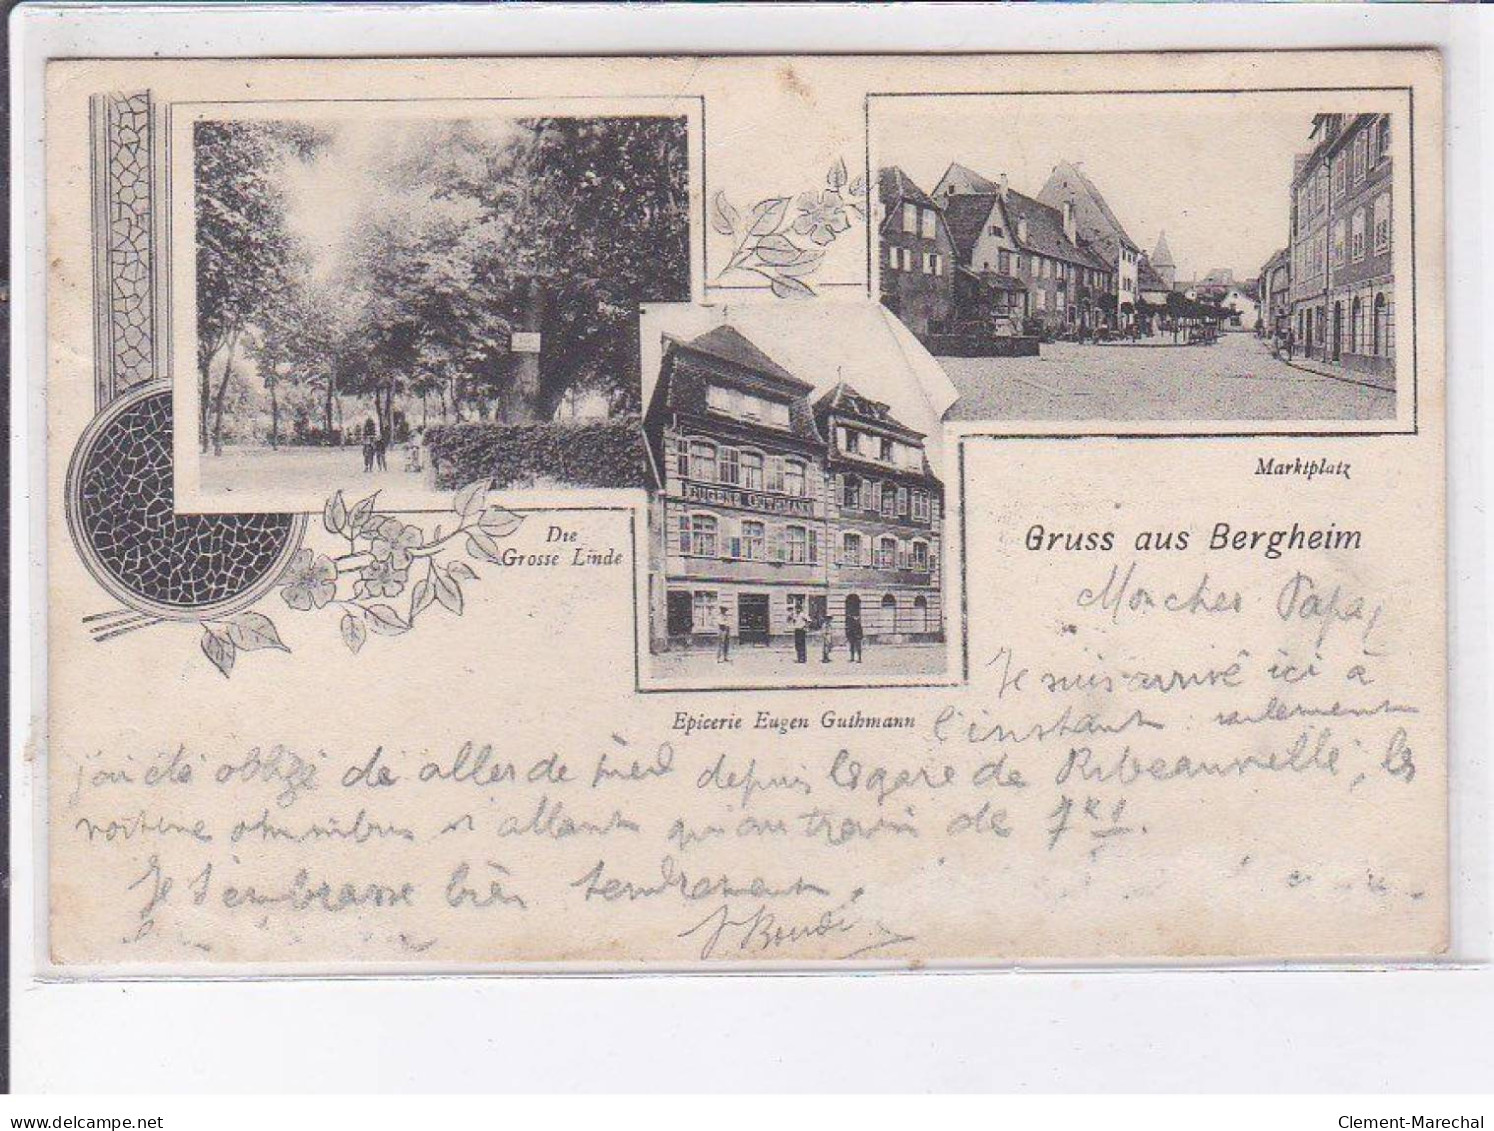 Marktplatz
Die
Grosse Linde
EUGENE GUTHMANN
Gruss aus Bergheim
Epicerie Eugen Guthmann
Mon cher Papa,
Je suis arrivé ici à
l'instant seulement
j'ai été obligé de aller de pied depuis la gare de Ribeauvillé, les
voiture omnibus n'allant qu'au train de 7h
Je t'embrasse bien tendrement.
delcampe.net
Clement-Marechal